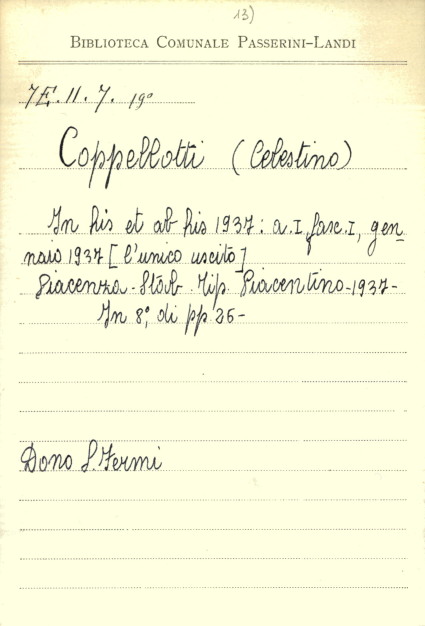 13)
BIBLIOTECA COMUNALE PASSERINI-LANDI
7E. II. 7. 19°
Coppellotti (Celestino)
In his et ab his 1937: a. I, fasc. I, gen=
naio 1937 [l'unico uscito]
Piacenza - Stab. Tip. Piacentino - 1937 -
In 8°, di pp. 26 -
Dono S. Fermi